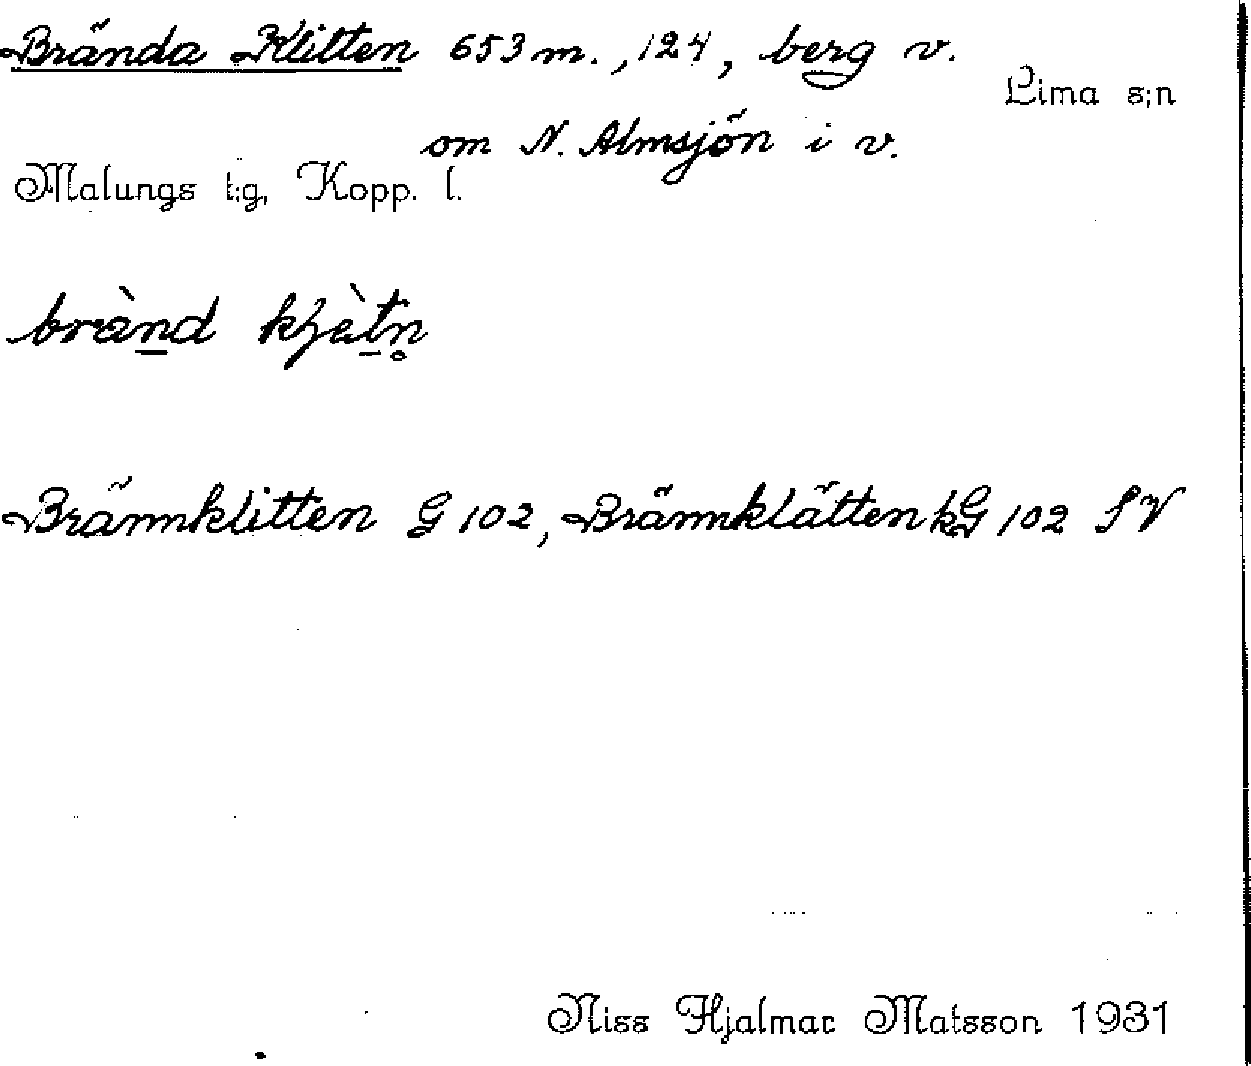 Brända Klitten 653 m., 124, berg v.
Lima s;n
om N. Almsjön i v.
Malungs t;g, Kopp. l.
brànd kl̥ètn̥
Brännklitten G 102, Brännklätten kG 102 SV
Niss Hjalmar Matsson 1931